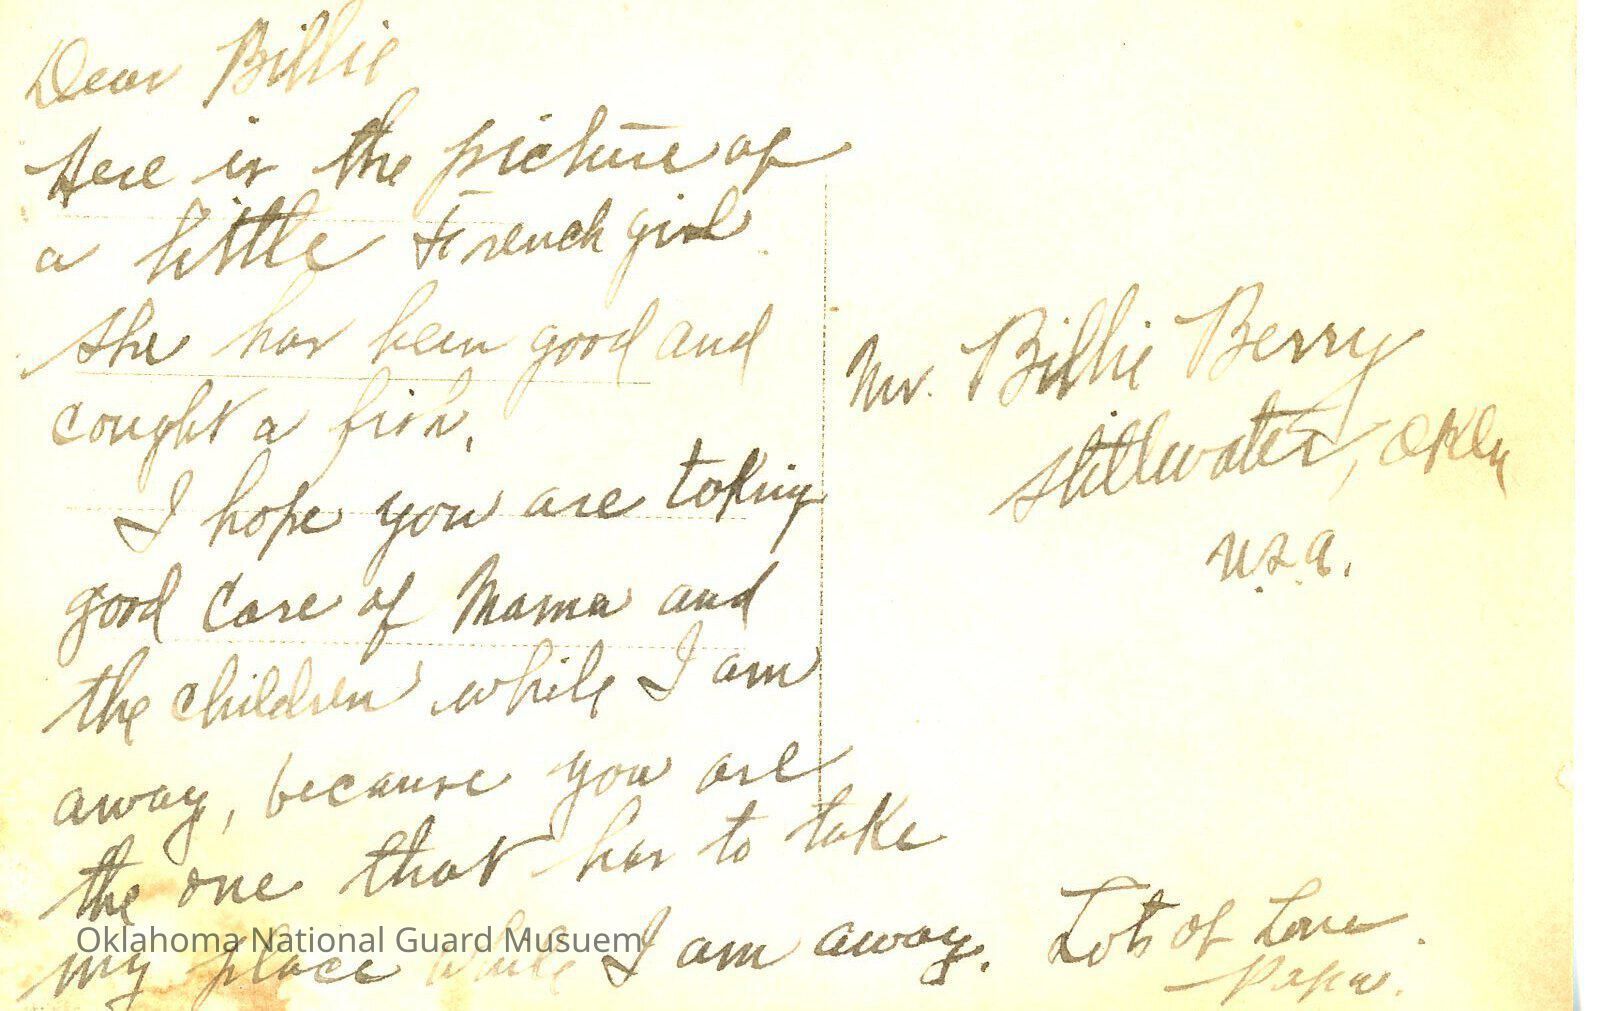 Dear Billie
Here is the picture of
a little French girl
she has been good and
cought a fish.
I hope you are taking
good care of Mama and
the children while I am
away, because you are
the one that has to take
my place while I am away.
Lots of Love.
Papa.
Mr. Billie Berry
Stillwater, Okla
U.S.A.
Oklahoma National Guard Musuem